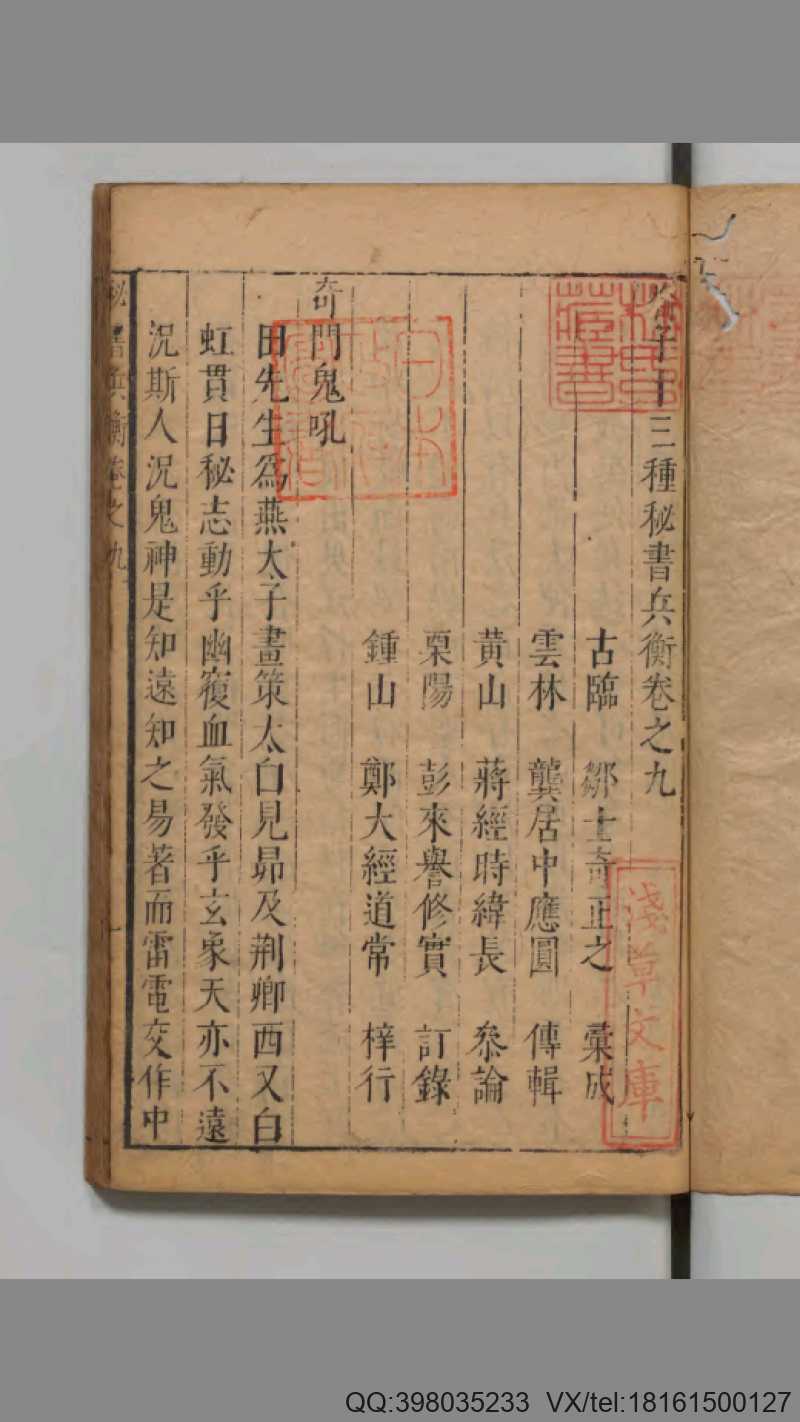 子十三種秘書兵衡卷之九
古臨 鄒士奇正之 彙成
雲林 龔居中應圓 傳輯
黄山 蔣經時緯長 叅論
栗陽 彭來譽修實 訂錄
鍾山 鄭大經道常 梓行
奇門鬼吼
田先生爲燕太子畫策太白見昴及荆卿西又白
虹貫日秘志動乎幽窽血氣發乎玄象天亦不遠
況斯人況鬼神是知遠知之易著而雷電交作中
秘書兵衡卷之九
一
淺草文庫
QQ:398035233 VX/tel:18161500127